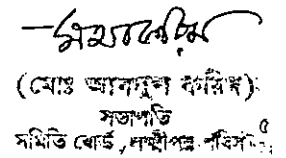 (মোঃ আবদুল করিম)
সভাপতি
সমিতি বোর্ড, লক্ষ্মীপুর পবিস